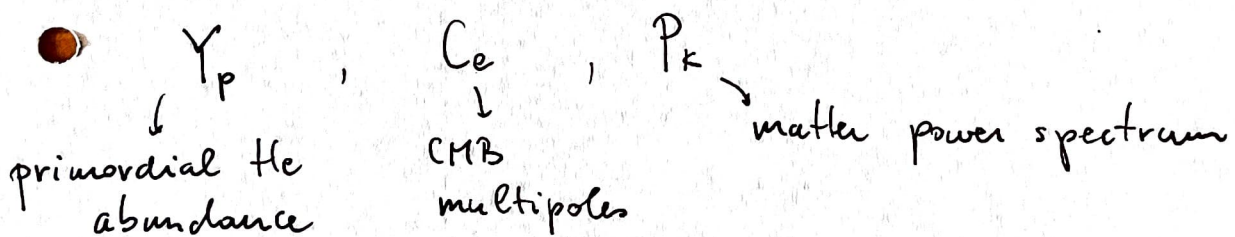 Yp , Cℓ , Pk
primordial He abundance
CMB multipoles
matter power spectrum